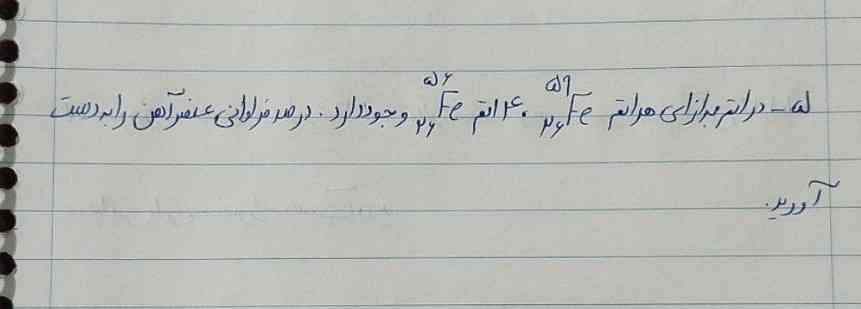 ۵- در اتم به ازای هر اتم ⁵⁹₂₆Fe ، ۴ اتم ⁵⁶₂₆Fe وجود دارد. درصد فراوانی عنصر آهن را به دست
آورید.